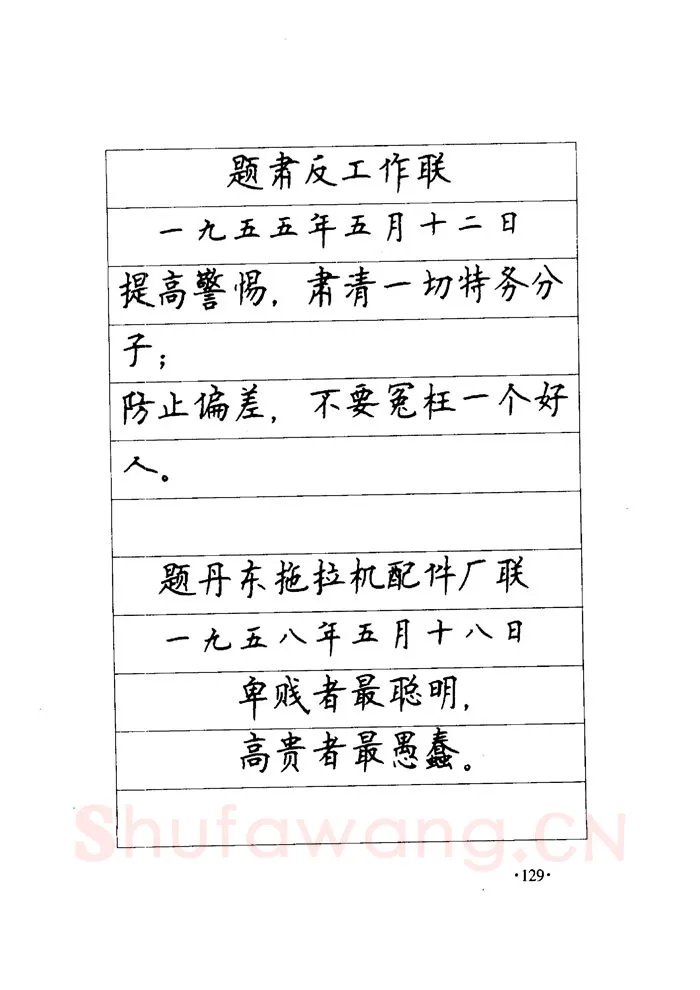 题肃反工作联
一九五五年五月十二日
提高警惕，肃清一切特务分
子；
防止偏差，不要冤枉一个好
人。
题丹东拖拉机配件厂联
一九五八年五月十八日
卑贱者最聪明，
高贵者最愚蠢。
Shufawang.CN
·129·